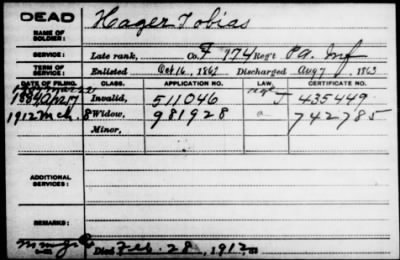 DEAD Hager Tobias
NAME OF SOLDIER:
SERVICE: Late rank, Co. F 174 Reg't Pa. Inf
TERM OF SERVICE: Enlisted Oct 16, 1862 Discharged Aug 7, 1863
DATE OF FILING. CLASS. APPLICATION NO. LAW. CERTIFICATE NO.
1884 Apr 17 Invalid, 511046 J 435449
1912 Mch. 8 Widow, 981928 a 742785
Minor,
ADDITIONAL SERVICES:
REMARKS:
Died Feb. 28, 1912,